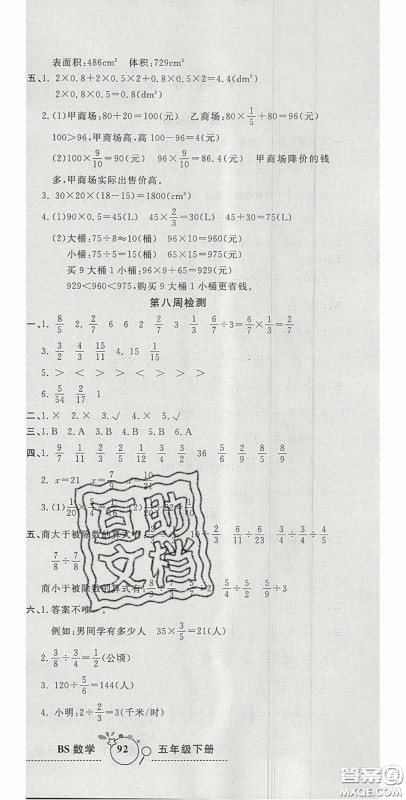 表面积：486cm² 体积：729cm³
五、1. 2×0.8＋2×0.5×2＋0.8×0.5×2=4.4(dm²)
2×0.8×0.5=0.8(dm³)
2. (1)甲商场：80＋20=100(元) 乙商场：80×1/5＋80=96(元)
100＞96，甲商场高，高100－96=4(元)
(2)100×9/10=90(元) 96×9/10=86.4(元) 甲商场降价的钱
多，甲商场实际出售价高。
3. 30×20×(18－15)=1800(cm³)
4. (1)90×0.5=45(L) 45×2/3=30(L) 45＋30=75(L)
(2)大桶：75÷8≈10(桶) 96×10=960(元)
小桶：75÷5=15(桶) 65×15=975(元)
买9大桶1小桶：96×9＋65=929(元)
929＜960＜975，购买9大桶1小桶更省钱。
第八周检测
一、1. 8/5 2/7 6 6 2 3/7 6/7÷3=6/7×1/3=2/7
3. 3/2 4/3 15/11 4. 15 11/15
5. ＞ ＜ ＞ ＞ ＞ ＞
6. 5/54 2/17 1
二、1. × 2. × 3. √ 4. × 5. √
三、1. B 2. A 3. B 4. B 5. B 6. A
2. x=21
五、商大于被除数的算式
7/8÷7/8
商小于被除数的算式有：
六、1. 答案不唯一。
例如：男同学有多少人 35×3/5=21(人)
2. 3/8÷3/4=1/2(公顷)
3. 60÷=144(人)
4. 小明：2÷2/3=3(千米/时)
BS 数学 92 五年级下册
互助文档
答案圈
MXQE.COM